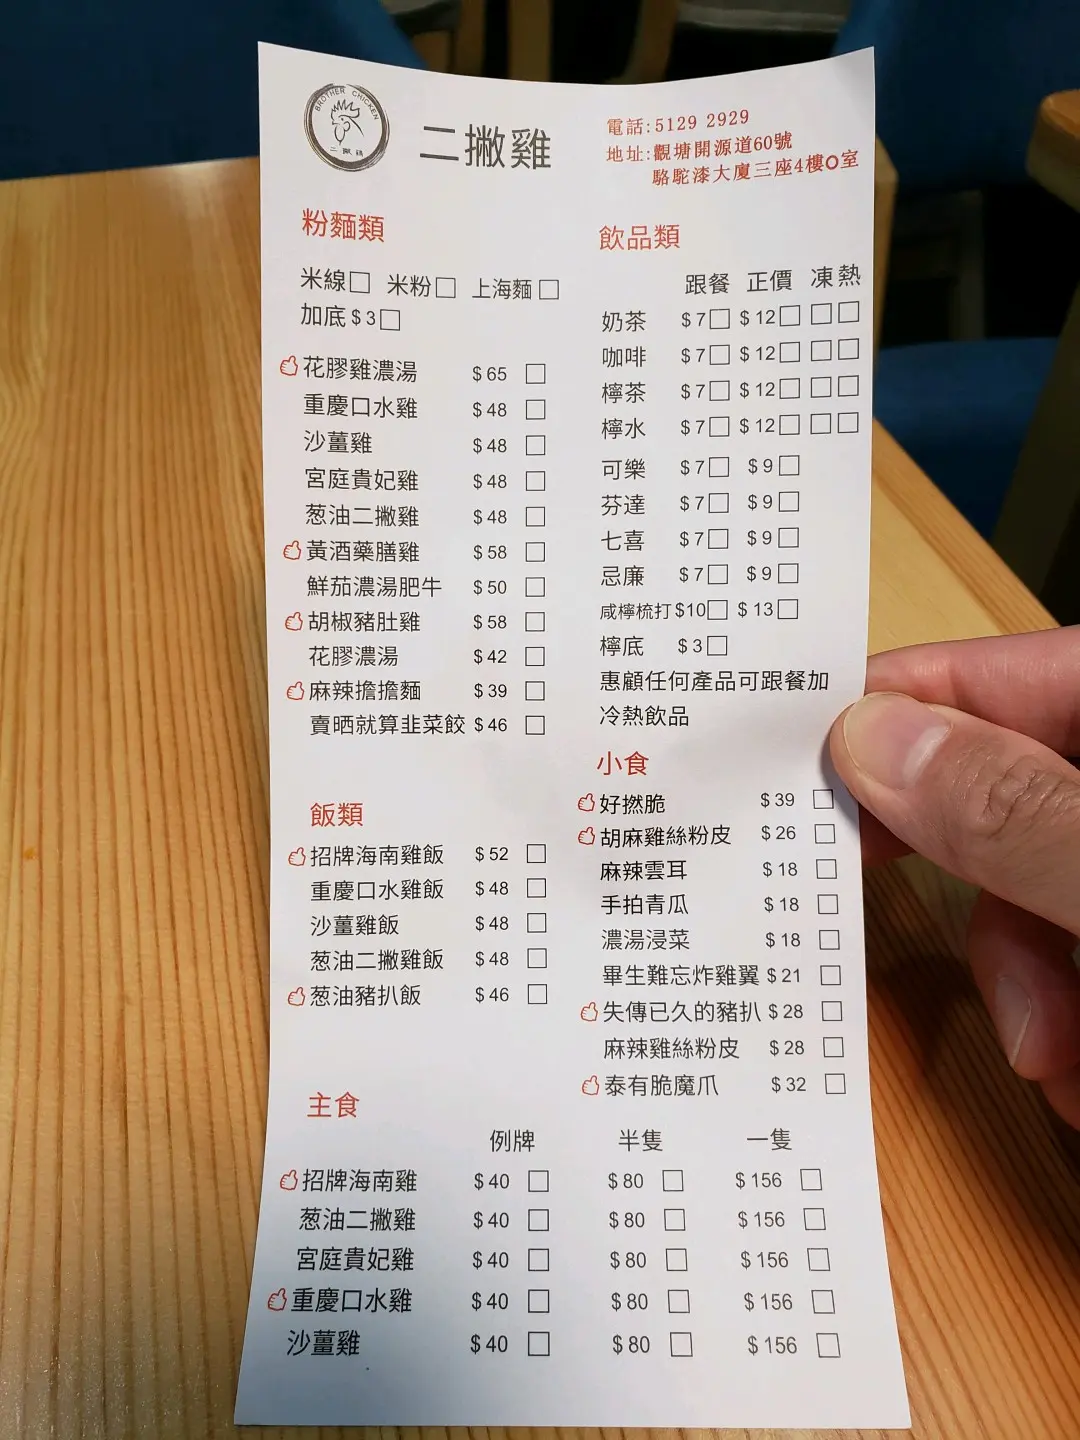 BROTHER CHICKEN
二撇雞
二撇雞
電話:5129 2929
地址:觀塘開源道60號
駱駝漆大廈三座4樓O室
粉麵類
米線□ 米粉□ 上海麵□
加底 $3□
花膠雞濃湯 $65 □
重慶口水雞 $48 □
沙薑雞 $48 □
宮庭貴妃雞 $48 □
葱油二撇雞 $48 □
黃酒藥膳雞 $58 □
鮮茄濃湯肥牛 $50 □
胡椒豬肚雞 $58 □
花膠濃湯 $42 □
麻辣擔擔麵 $39 □
賣晒就算韭菜餃 $46 □
飯類
招牌海南雞飯 $52 □
重慶口水雞飯 $48 □
沙薑雞飯 $48 □
葱油二撇雞飯 $48 □
葱油豬扒飯 $46 □
飲品類
跟餐 正價 凍 熱
奶茶 $7□ $12□ □ □
咖啡 $7□ $12□ □ □
檸茶 $7□ $12□ □ □
檸水 $7□ $12□ □ □
可樂 $7□ $9□
芬達 $7□ $9□
七喜 $7□ $9□
忌廉 $7□ $9□
咸檸梳打 $10□ $13□
檸底 $3□
惠顧任何產品可跟餐加
冷熱飲品
小食
好撚脆 $39 □
胡麻雞絲粉皮 $26 □
麻辣雲耳 $18 □
手拍青瓜 $18 □
濃湯浸菜 $18 □
畢生難忘炸雞翼 $21 □
失傳已久的豬扒 $28 □
麻辣雞絲粉皮 $28 □
泰有脆魔爪 $32 □
主食
例牌 半隻 一隻
招牌海南雞 $40 □ $80 □ $156 □
葱油二撇雞 $40 □ $80 □ $156 □
宮庭貴妃雞 $40 □ $80 □ $156 □
重慶口水雞 $40 □ $80 □ $156 □
沙薑雞 $40 □ $80 □ $156 □